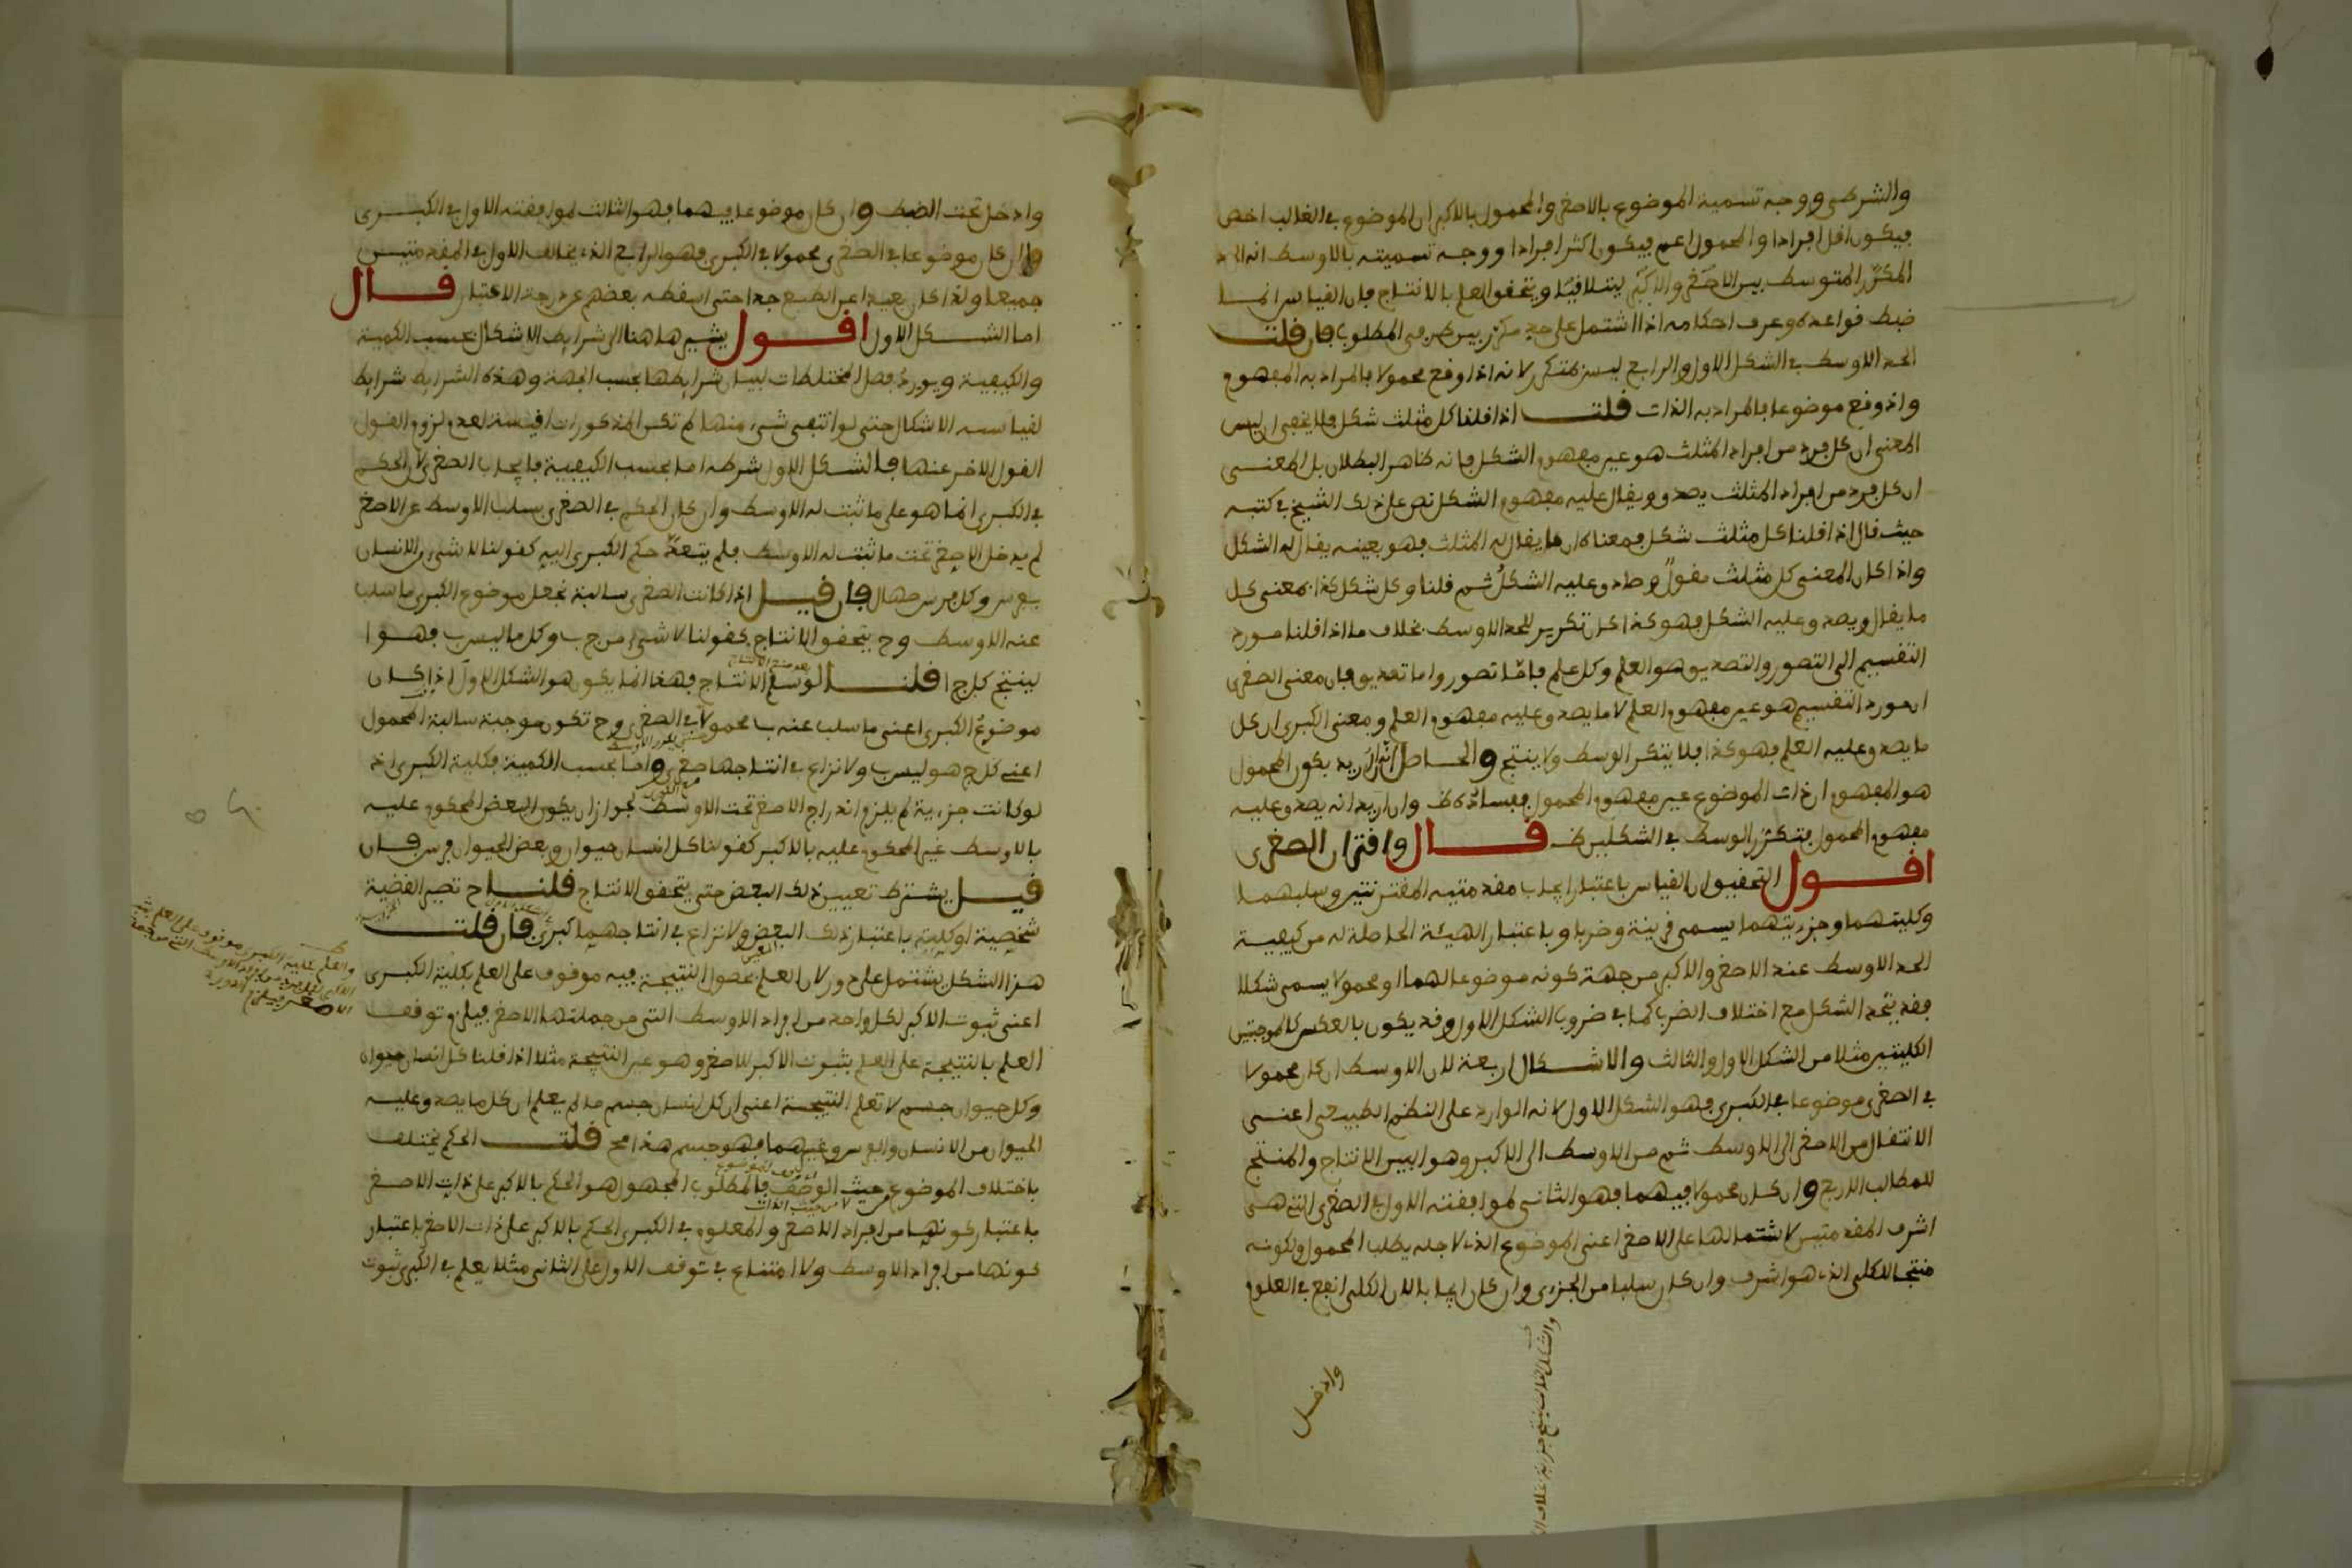 والشرطى ووجه تسمية الموضوع بالاصغر والمحمول بالاكبر ان الموضوع في الغالب اخص
فيكون اقل افرادا والمحمول اعم فيكون اكثر افرادا ووجه تسميته بالاوسط انه الحد
المكرّر المتوسط بين الاصغر والاكبر ليتلاقيا ويتحقق العلم بالانتاج فان القياس انما
ضبط قواعده وعرف احكامه اذا اشتمل على حد مكرر بين طرفى المطلوب فان قلت
الحد الاوسط في الشكل الاول والرابع ليس بمتكرر لانه اذا وقع محمولا فالمراد به المفهوم
واذا وقع موضوعا فالمراد به الذات قلت اذا قلنا كل مثلث شكل فلا يخفى ان ليس
المعنى ان كل فرد من افراد المثلث هو عين مفهوم الشكل فانه ظاهر البطلان بل المعنى
ان كل فرد من افراد المثلث يصدق ويقال عليه مفهوم الشكل نص على ذلك الشيخ في كتبه
حيث قال اذا قلنا كل مثلث شكل فمعناه ان ما يقال له المثلث فهو بعينه يقال له الشكل
واذا كان المعنى كل مثلث مقول وصادق عليه الشكل ثم قلنا وكل شكل كذا بمعنى كل
ما يقال ويصدق عليه الشكل فهو كذا كان تكرير للحد الاوسط بخلاف ما اذا قلنا مورد
التقسيم الى التصور والتصديق هو العلم وكل علم فامّا تصور واما تصديق فان معنى الصغرى
ان مورد التقسيم هو عين مفهوم العلم لا ما يصدق عليه مفهوم العلم ومعنى الكبرى ان كل
ما يصدق عليه العلم فهو كذا فلا يتكرر الوسط ولا ينتج والحاصل انه ان اريد بكون المحمول
هو المفهوم ان ذات الموضوع عين مفهوم المحمول ففساده ظ وان اريد انه يصدق عليه
مفهوم المحمول فتكرر الوسط في الشكلين ظ قال واقتران الصغرى
اقول التحقيق ان القياس باعتبار ايجاب مقدمتيه المقترنتين وسلبهما
وكليتهما وجزئيتهما يسمى قرينة وضربا وباعتبار الهيئة الحاصلة له من كيفية
الحد الاوسط عند الاصغر والاكبر من جهة كونه موضوعا لهما او محمولا يسمى شكلا
فقد يتحد الشكل مع اختلاف الضرب كما في ضروب الشكل الاول وقد يكون بالعكس كالموجبتين
الكليتين مثلا من الشكل الاول والثالث والاشكال اربعة لان الاوسط ان كان محمولا
في الصغرى موضوعا في الكبرى فهو الشكل الاول لانه الوارد على النظم الطبيعى اعنى
الانتقال من الاصغر الى الاوسط ثم من الاوسط الى الاكبر وهو البين الانتاج والمنتج
للمطالب الاربع وان كان محمولا فيهما فهو الثانى لموافقته الاول في الصغرى التى هى
اشرف المقدمتين لاشتمالها على الاصغر اعنى الموضوع الذى لاجله يطلب المحمول ولكونه
منتجا للكلى الذى هو اشرف وان كان سلبا من الجزءى وان كان ايجابا لان الكلى انفع في العلوم
وادخل
وادخل تحت الضبط وان كان موضوعا فيهما فهو الثالث لموافقته الاول في الكبرى
وان كان موضوعا في الصغرى محمولا في الكبرى فهو الرابع الذى يخالف الاول في المقدمتين
جميعا ولذا كان بعيدا عن الطبع جدا حتى اسقطه بعضهم عن درجة الاعتبار قال
اما الشكل الاول اقول يشير هاهنا الى شرايط الاشكال بحسب الكمية
والكيفية ويورد فصل المختلطات لبيان شرايطها بحسب الجهة وهذه الشرايط شرايط
لقياسيه الاشكال حتى لو انتفى شىء منها لم تكن المذكورات اقيسة لعدم لزوم القول
القول الاخر عنها فالشكل الاول شرطه اما بحسب الكيفية فايجاب الصغرى لان الحكم
في الكبرى انما هو على ما ثبت له الاوسط وان كان الحكم في الصغرى بسلب الاوسط عن الاصغر
لم يدخل الاصغر تحت ما ثبت له الاوسط فلم يتعدّ حكم الكبرى اليه كقولنا لا شىء من الانسان
بفرس وكل فرس صهال فان قيل اذا كانت الصغرى سالبة نجعل موضوع الكبرى ما سلب
عنه الاوسط وح يتحقق الانتاج كقولنا لا شىء من ج ب وكل ما ليس ب فهو ا
لينتج كل ج ا قلنا لو سلم الانتاج فهذا انما يكون هو الشكل الاول اذا كان
موضوع الكبرى اعنى ما سلب عنه ب محمولا في الصغرى وح تكون موجبة سالبة المحمول
اعنى كل ج هو ليس ب ولا نزاع في انتاجها صغرى واما بحسب الكمية فكلية الكبرى اذ
لو كانت جزءية لم يلزم اندراج الاصغر تحت الاوسط لجواز ان يكون البعض المحكوم عليه
بالاوسط غير المحكوم عليه بالاكبر كقولنا كل انسان حيوان وبعض الحيوان فرس فان
قيل يشترط تعيين ذلك البعض حتى يتحقق الانتاج قلنا ح تصير القضية
شخصية او كلية باعتبار ذلك البعض ولا نزاع في انتاجهما كبرى فان قلت
هذا الشكل يشتمل على دور لان العلم بحصول النتيجة فيه موقوف على العلم بكلية الكبرى
اعنى ثبوت الاكبر لكل واحد من افراد الاوسط التى من جملتها الاصغر فيلزم توقف
العلم بالنتيجة على العلم بثبوت الاكبر للاصغر وهو عين النتيجة مثلا اذا قلنا كل انسان حيوان
وكل حيوان جسم لا تعلم النتيجة اعنى ان كل انسان جسم ما لم يعلم ان كل ما يصدق عليه
الحيوان من الانسان والفرس وغيرهما فهو جسم هذا مح قلت الحكم يختلف
باختلاف الموضوع حيث الوصف فالمطلوب المجهول هو الحكم بالاكبر على ذات الاصغر
باعتبار كونها من افراد الاصغر والمعلوم في الكبرى الحكم بالاكبر على ذات الاصغر باعتبار
كونها من افراد الاوسط ولا امتناع في توقف الاول على الثانى مثلا يعلم في الكبرى ثبوت